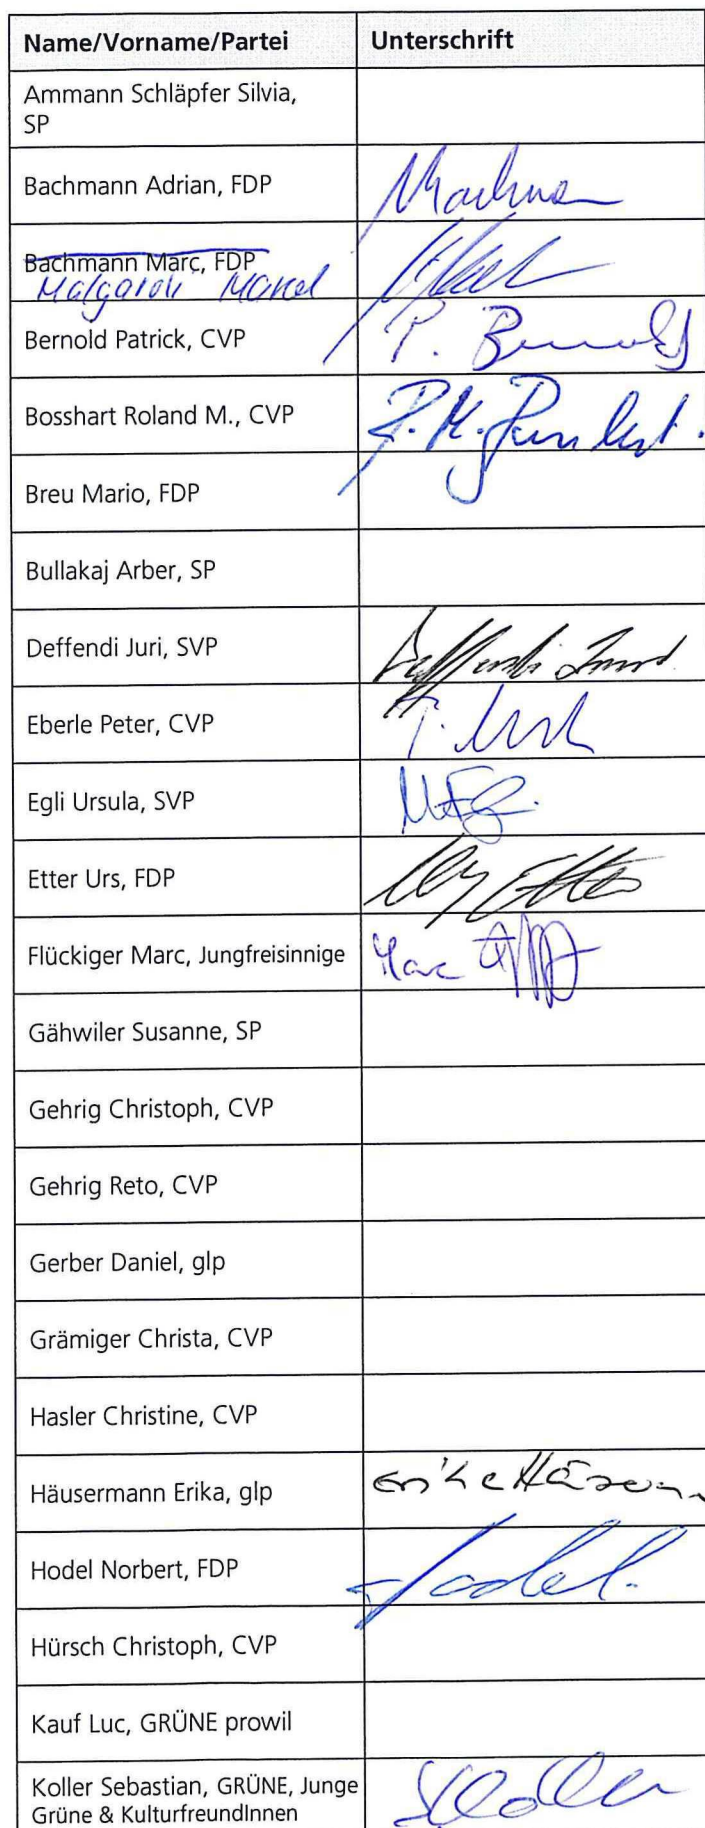 Name/Vorname/Partei Unterschrift
Ammann Schläpfer Silvia,
SP
Bachmann Adrian, FDP
Bachmann Marc, FDP
Malgaroli Marcel
Bernold Patrick, CVP P. Bernold
Bosshart Roland M., CVP R. M.
Breu Mario, FDP
Bullakaj Arber, SP
Deffendi Juri, SVP Deffendi
Eberle Peter, CVP
Egli Ursula, SVP
Etter Urs, FDP Urs Etter
Flückiger Marc, Jungfreisinnige Marc
Gähwiler Susanne, SP
Gehrig Christoph, CVP
Gehrig Reto, CVP
Gerber Daniel, glp
Grämiger Christa, CVP
Hasler Christine, CVP
Häusermann Erika, glp Erika
Hodel Norbert, FDP Hodel.
Hürsch Christoph, CVP
Kauf Luc, GRÜNE prowil
Koller Sebastian, GRÜNE, Junge
Grüne & KulturfreundInnen SKoller